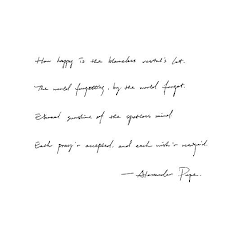 How happy is the blameless vestal's lot.
The world forgetting, by the world forgot.
Eternal sunshine of the spotless mind
Each pray'r accepted, and each wish'd resign'd.
—Alexander Pope.